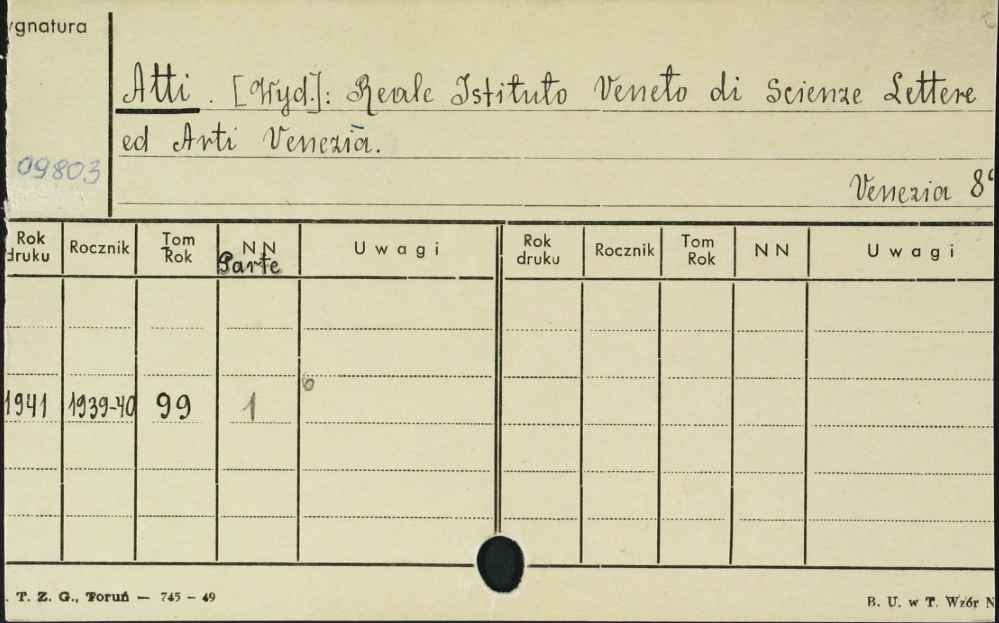 ygnatura
Atti. [Wyd.]: Reale Istituto Veneto di Scienze Lettere
ed Arti Venezia.
09803
Venezia 8°
Rok druku Rocznik Tom Rok NN Parte Uwagi Rok druku Rocznik Tom Rok NN Uwagi
6
1941 1939-40 99 1
. T. Z. G., Toruń — 745 - 49
B. U. w T. Wzór N